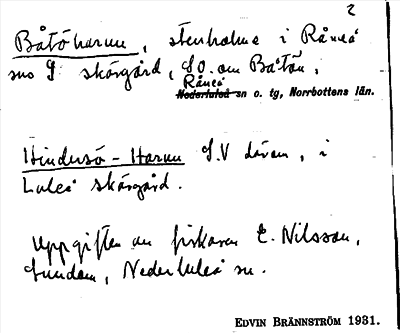 2
Båtöharun, stenholme i Råneå
sns S skärgård, S.O. om Båtön,
Råneå
Nederluleå sn o. tg, Norrbottens län.
Hindersö-Harun S.V därom, i
Luleå skärgård.
Uppgiften av fiskaren E. Nilsson,
Sundom, Nederluleå sn.
EDVIN BRÄNNSTRÖM 1931.